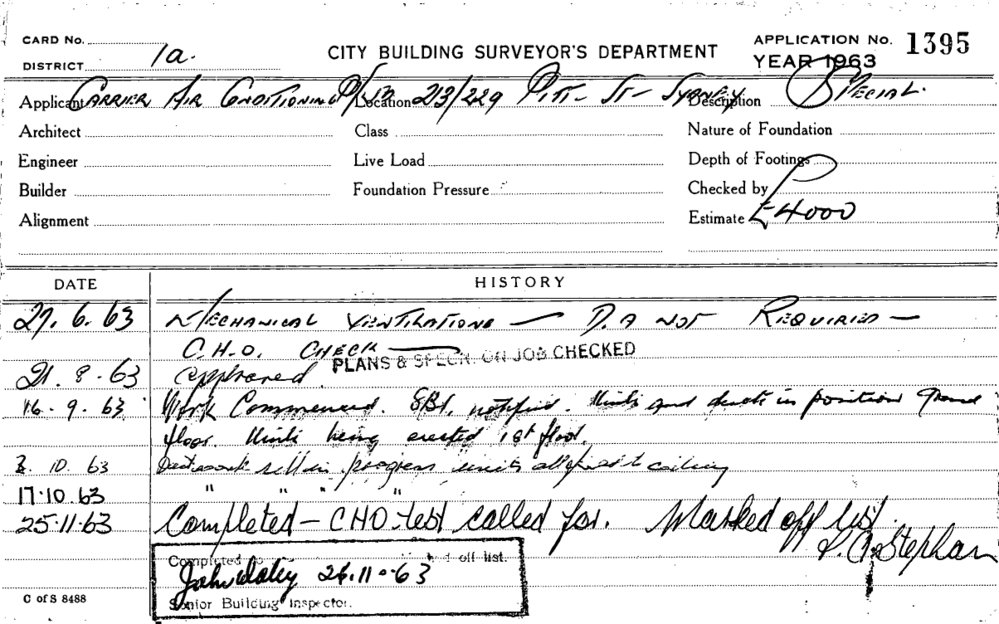 CARD No.
DISTRICT 1a.
CITY BUILDING SURVEYOR'S DEPARTMENT
APPLICATION No. 1395
YEAR 1963
Applicant CARRIER AIR CONDITIONING P/L Location 213/229 PITT- ST- SYDNEY Description SPECIAL.
Architect Class Nature of Foundation
Engineer Live Load Depth of Footings
Builder Foundation Pressure Checked by
Alignment Estimate £4000
DATE HISTORY
27. 6. 63 MECHANICAL VENTILATIONS — D.A NOT REQUIRED —
C.H.O. CHECK — PLANS & SPECN. ON JOB CHECKED
21. 8. 63 Approved.
16. 9. 63 Work Commenced. SBI. notified. Units and ducts in position Ground
floor. Units being erected 1st floor.
2. 10. 63 Ductwork still in progress units ceiling
17.10.63 " " " "
25.11.63 Completed - CHO test called for. Marked off list.
Stephan
Completed off list.
John Daley 26.11.63
Senior Building Inspector.
C of S 8488